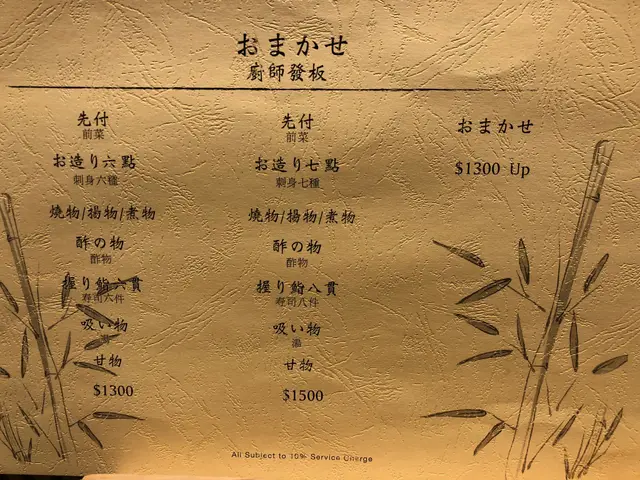 おまかせ
廚師發板
先付
前菜
お造り六點
刺身六種
燒物/揚物/煮物
酢の物
酢物
握り鮨六貫
寿司六件
吸い物
湯
甘物
$1300
先付
前菜
お造り七點
刺身七種
燒物/揚物/煮物
酢の物
酢物
握り鮨八貫
寿司八件
吸い物
湯
甘物
$1500
おまかせ
$1300 Up
All Subject to 10% Service Charge